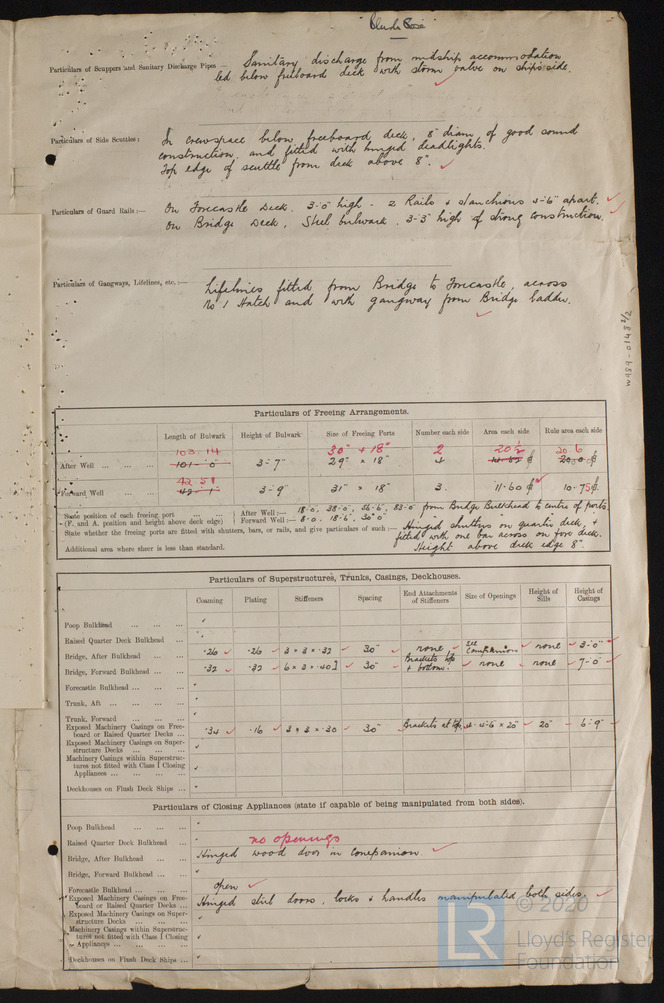 Particulars of Scuppers and Sanitary Discharge Pipes — Sanitary discharge from midship accommodation
led below freeboard deck with storm valve on ship's side.
Particulars of Side Scuttles: In crewspace below freeboard deck, 8" diam, of good sound
construction, and fitted with hinged deadlights.
Top edge of scuttle from deck above 8".
Particulars of Guard Rails:— On Forecastle Deck. 3-0" high - 2 Rails & stanchions 4-6" apart.
On Bridge Deck, Steel bulwark, 3-3" high of strong construction.
Particulars of Gangways, Lifelines, etc.:— Lifelines fitted from Bridge to Forecastle, across
No 1 Hatch and with gangway from Bridge ladder.
W989-0148 2/2
Particulars of Freeing Arrangements.
Length of Bulwark Height of Bulwark Size of Freeing Ports Number each side Area each side Rule area each side
103.14 30" × 18" 2 20½ 20 6
After Well ... ... ... 101-0" 3-7" 29" × 18" 4 20.0
42 51
Forward Well ... ... 42-1 3-9" 31" × 18" 3. 11.60 10.75
State position of each freeing port ... ... After Well:— 18-0, 38-0, 56-6, 83-0 from Bridge Bulkhead to centre of ports.
(F. and A. position and height above deck edge) Forward Well:— 8-0, 18-6, 30-0
State whether the freeing ports are fitted with shutters, bars, or rails, and give particulars of such:— Hinged shutters on quarter deck, &
fitted with one bar across on fore deck.
Additional area where sheer is less than standard. Height above deck edge 8".
Particulars of Superstructures, Trunks, Casings, Deckhouses.
Coaming Plating Stiffeners Spacing End Attachments of Stiffeners Size of Openings Height of Sills Height of Casings
Poop Bulkhead ... ... ...
Raised Quarter Deck Bulkhead ...
Bridge, After Bulkhead ... ... .26 .26 3 × 3 × .32 30" none see Companion none 3-0"
Bridge, Forward Bulkhead ... ... .32 .32 6 × 3 × .40 30" Brackets top & bottom. none none 7-0"
Forecastle Bulkhead ... ... ...
Trunk, Aft ... ... ... ...
Trunk, Forward ... ... ...
Exposed Machinery Casings on Freeboard or Raised Quarter Decks ... .34 .16 3 × 3 × .30 30" Brackets at top 4-4-6 × 20" 20" 6-9"
Exposed Machinery Casings on Superstructure Decks ... ... ...
Machinery Casings within Superstructures not fitted with Class I Closing Appliances ... ... ... ...
Deckhouses on Flush Deck Ships ...
Particulars of Closing Appliances (state if capable of being manipulated from both sides).
Poop Bulkhead ... ... ...
Raised Quarter Deck Bulkhead ... no openings
Bridge, After Bulkhead ... ... Hinged wood door in companion
Bridge, Forward Bulkhead ... ...
Forecastle Bulkhead ... ... ... open
Exposed Machinery Casings on Freeboard or Raised Quarter Decks ... Hinged steel doors, locks & handles manipulated both sides.
Exposed Machinery Casings on Superstructure Decks ... ... ...
Machinery Casings within Superstructures not fitted with Class I Closing Appliances ... ... ... ...
Deckhouses on Flush Deck Ships ...
LR
© 2020
Lloyd's Register
Foundation